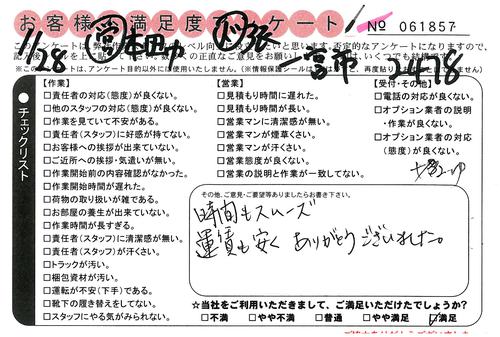 お客様満足度アンケート
№ 061857
1/28
一宮市
2478
チェックリスト
【作業】
□責任者の対応(態度)が良くない。
□他のスタッフの対応(態度)が良くない。
□作業を見ていて不安がある。
□責任者(スタッフ)に好感が持てない。
□お客様への挨拶が出来ていない。
□ご近所への挨拶・気遣いが無い。
□作業開始前の内容確認がなかった。
□作業開始時間が遅れた。
□荷物の取り扱いが雑である。
□お部屋の養生が出来ていない。
□作業時間が長すぎる。
□責任者(スタッフ)に清潔感が無い。
□責任者(スタッフ)が汗くさい。
□トラックが汚い。
□梱包資材が汚い。
□運転が不安(下手)である。
□靴下の履き替えをしてない。
□スタッフにやる気がみられない。
【営業】
□見積もり時間に遅れた。
□見積もり時間が長い。
□営業マンに清潔感が無い。
□営業マンが煙草くさい。
□営業マンが汗くさい。
□営業態度が良くない。
□営業の説明と作業が一致してない。
【受付・その他】
□電話の対応が良くない。
□オプション業者の説明
・作業が良くない。
□オプション業者の対応
(態度)が良くない。
その他、ご意見・ご要望等ありましたらお書き下さい。
時間もスムーズ
運賃も安く ありがとうございました。
☆当社をご利用いただきまして、ご満足いただけたでしょうか?
□不満 □やや不満 □普通 □やや満足 ☑満足